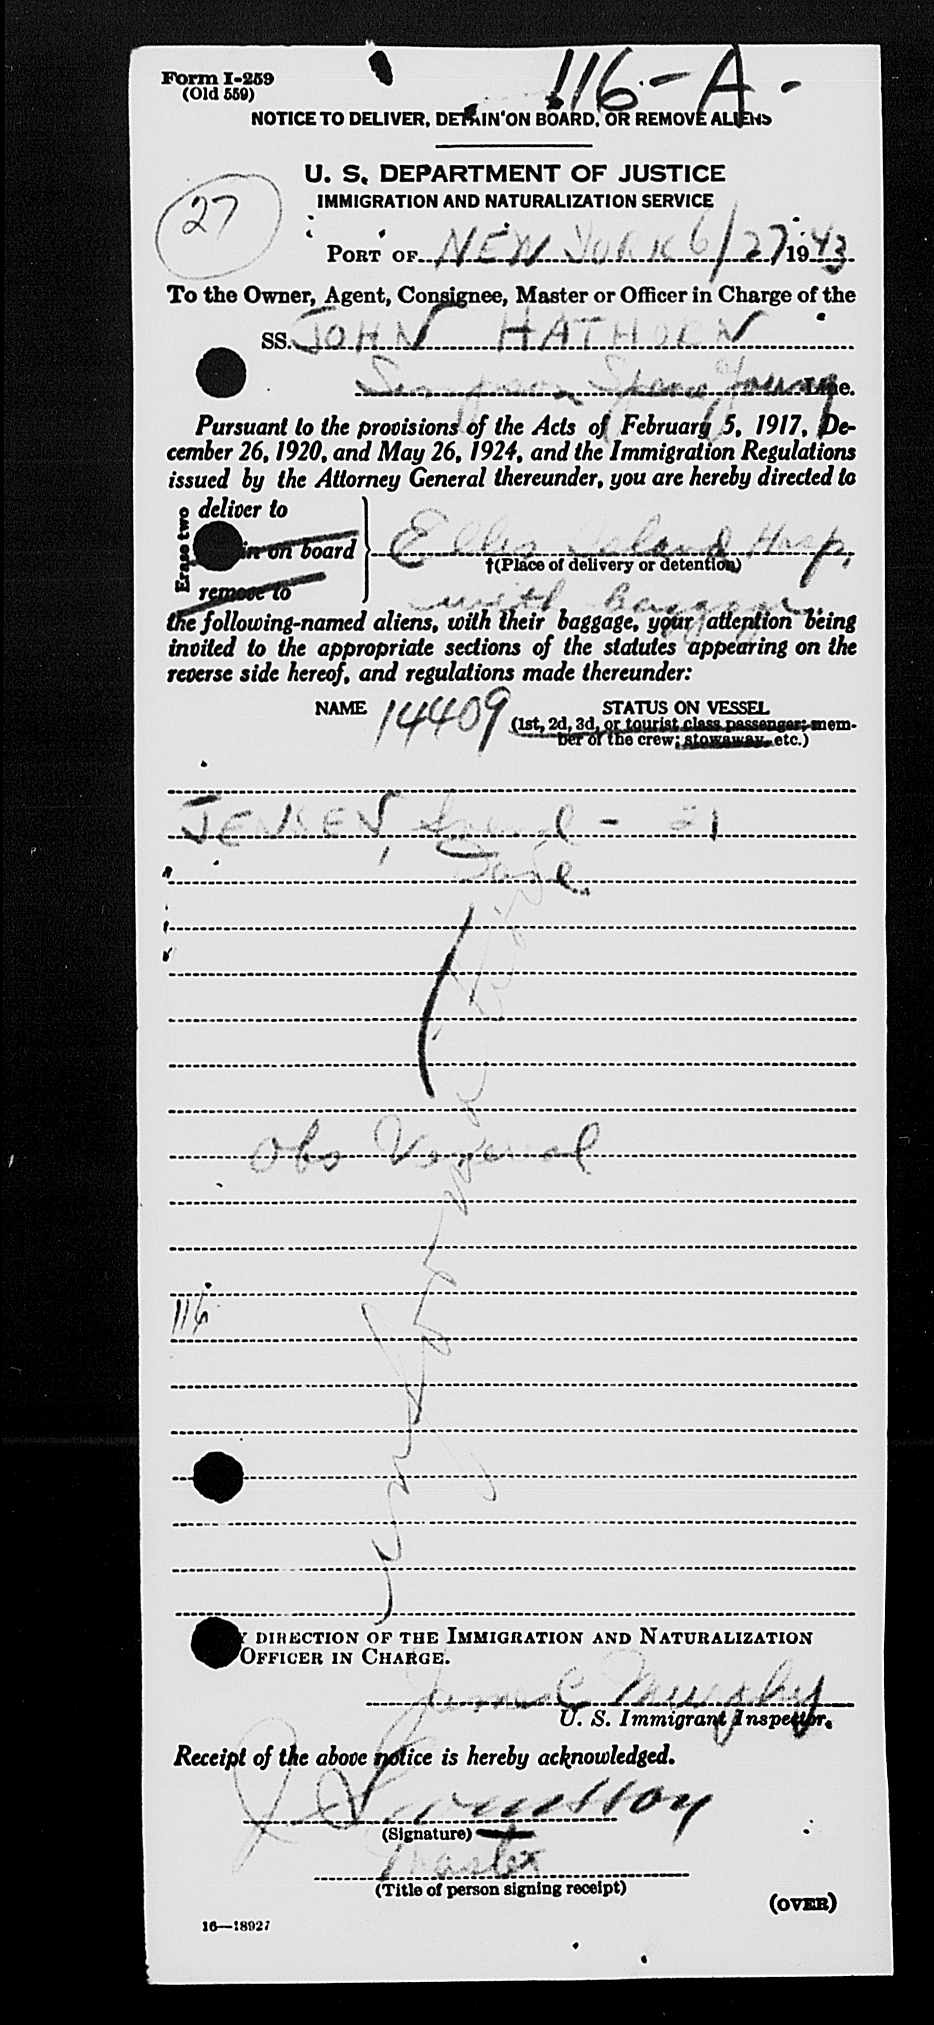 Form I-259
(Old 559)
116-A-
NOTICE TO DELIVER, DETAIN ON BOARD, OR REMOVE ALIENS
U. S. DEPARTMENT OF JUSTICE
IMMIGRATION AND NATURALIZATION SERVICE
27
PORT OF NEW YORK 6/27 1943
To the Owner, Agent, Consignee, Master or Officer in Charge of the
SS. JOHN HATHORN
Simpson Spence Young Line.
Pursuant to the provisions of the Acts of February 5, 1917, De-
cember 26, 1920, and May 26, 1924, and the Immigration Regulations
issued by the Attorney General thereunder, you are hereby directed to
Erase two
deliver to
in on board
remove to
Ellis Island Hosp,
†(Place of delivery or detention)
with baggage
the following-named aliens, with their baggage, your attention being
invited to the appropriate sections of the statutes appearing on the
reverse side hereof, and regulations made thereunder:
NAME 14409 STATUS ON VESSEL
(1st, 2d, 3d, or tourist class passenger; mem-
ber of the crew; stowaway, etc.)
JENSEN, - 21
Obs Venereal
116
DIRECTION OF THE IMMIGRATION AND NATURALIZATION
OFFICER IN CHARGE.
Murphy
U. S. Immigrant Inspector.
Receipt of the above notice is hereby acknowledged.
(Signature)
Master
(Title of person signing receipt)
(OVER)
16—18927